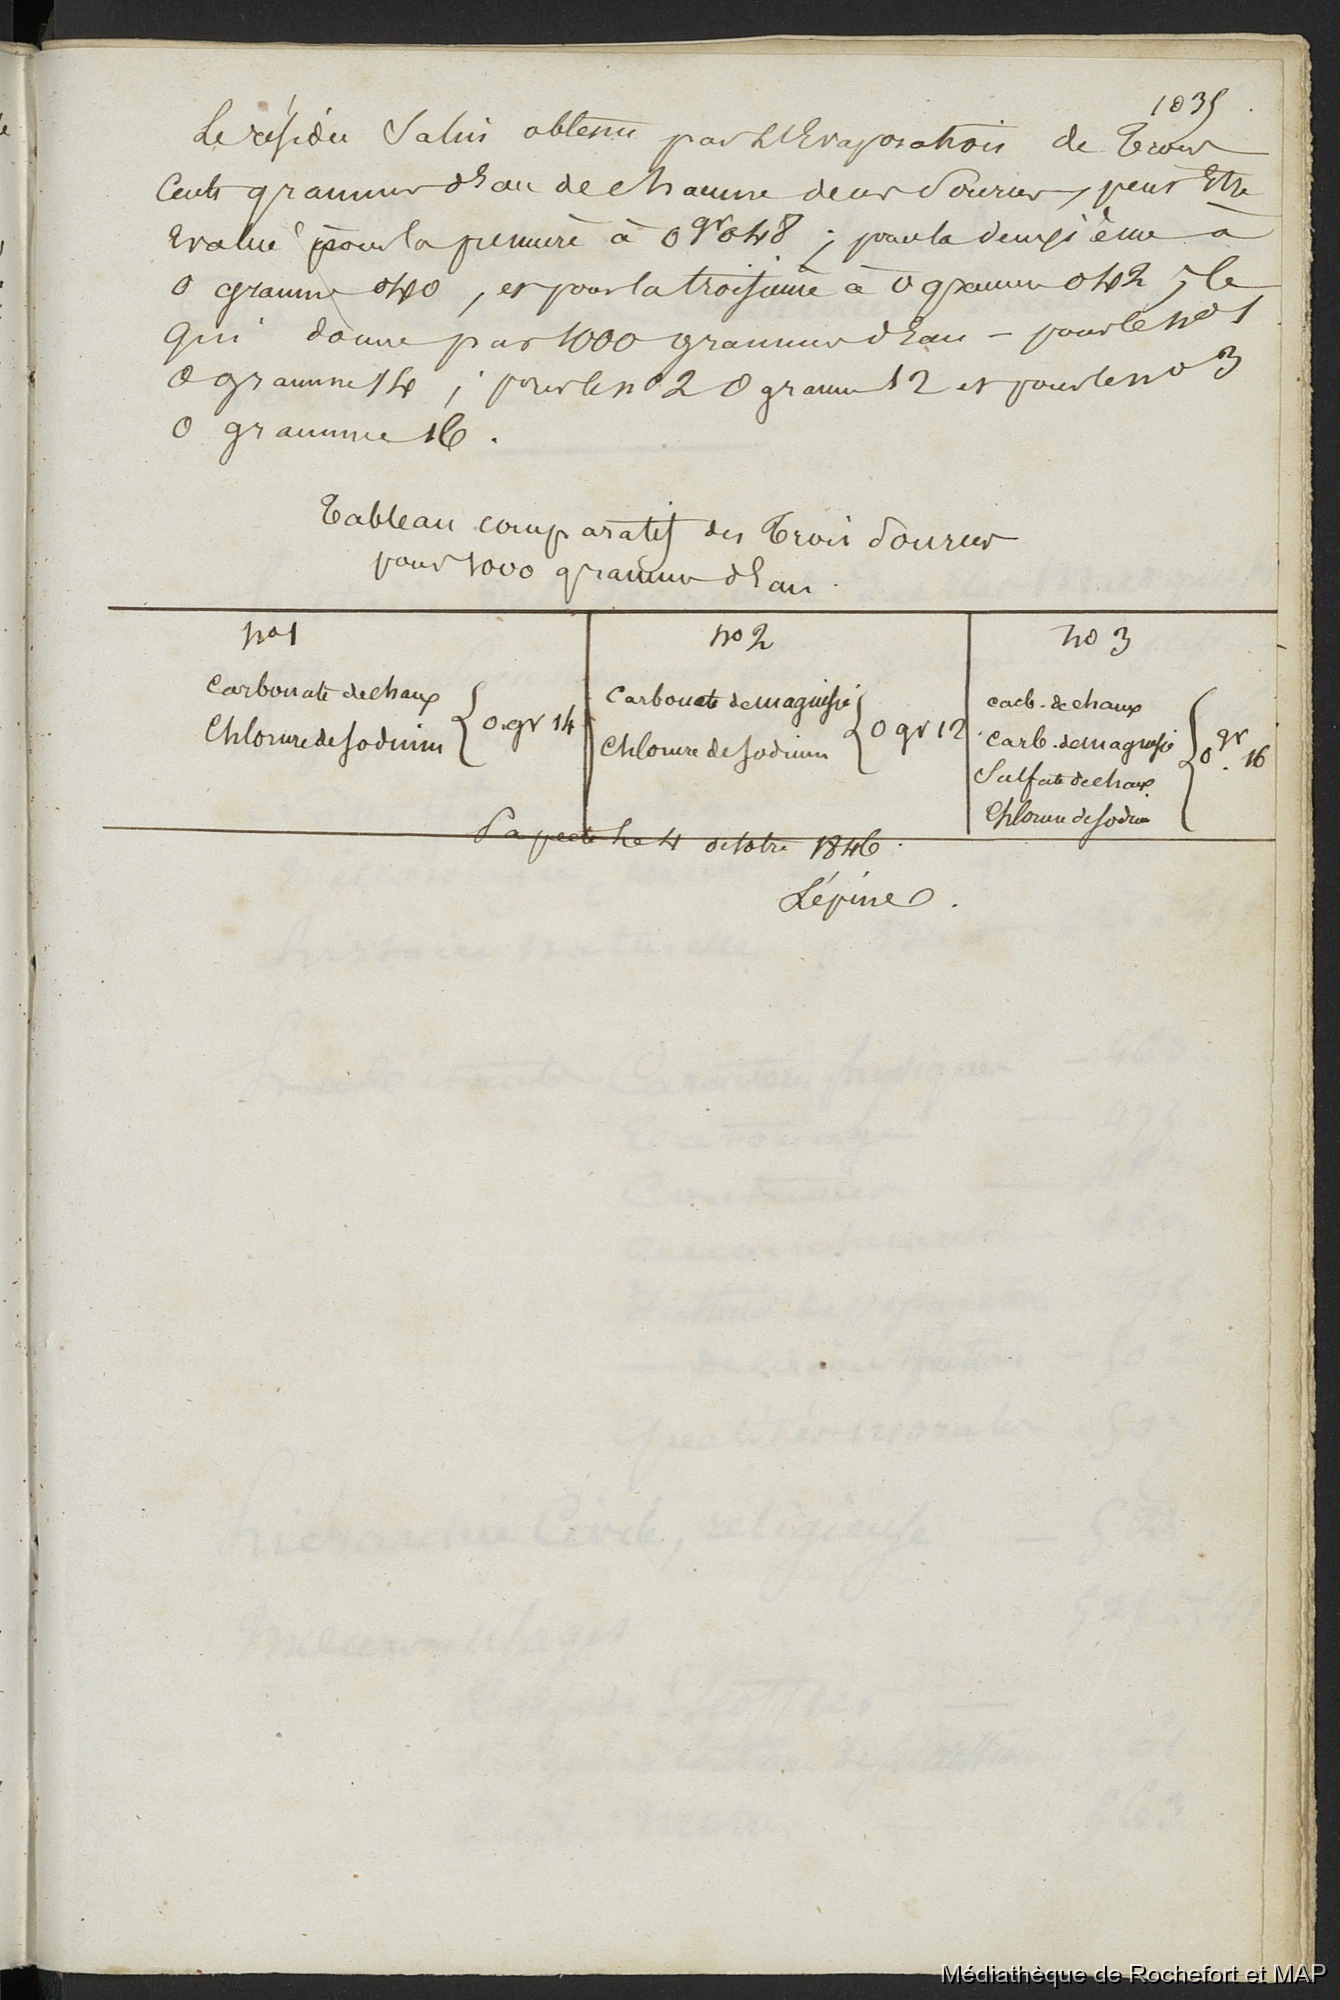 1035
Le résidu Salin obtenu par l'Evaporation de Trois
Cents grammes d'Eau de chacune de ces Sources, peut Etre
Evalué pour la premiere à 0gr048 ; pour la deuxième à
0 gramme 040 , et pour la troisieme à 0 gramme 042 ; Ce
qui donne par 1000 grammes d'Eau – pour le no 1
0 gramme 14 ; pour le no 2 0 gramme 12 et pour le no 3
0 gramme 16 .
Tableau comparatif des Trois Sources
pour 1000 grammes d'Eau .
no 1
Carbonate de chaux
Chlorure de Sodium
0.gr 14
no 2
Carbonate de magnésie
Chlorure de Sodium
0 gr 12
no 3
carb. de chaux
Carb. de magnésie
Sulfate de chaux
Chlorure de Sodium
0 gr. 16
Papeete Le 4 octobre 1846 .
Lépine .
Médiathèque de Rochefort et MAP